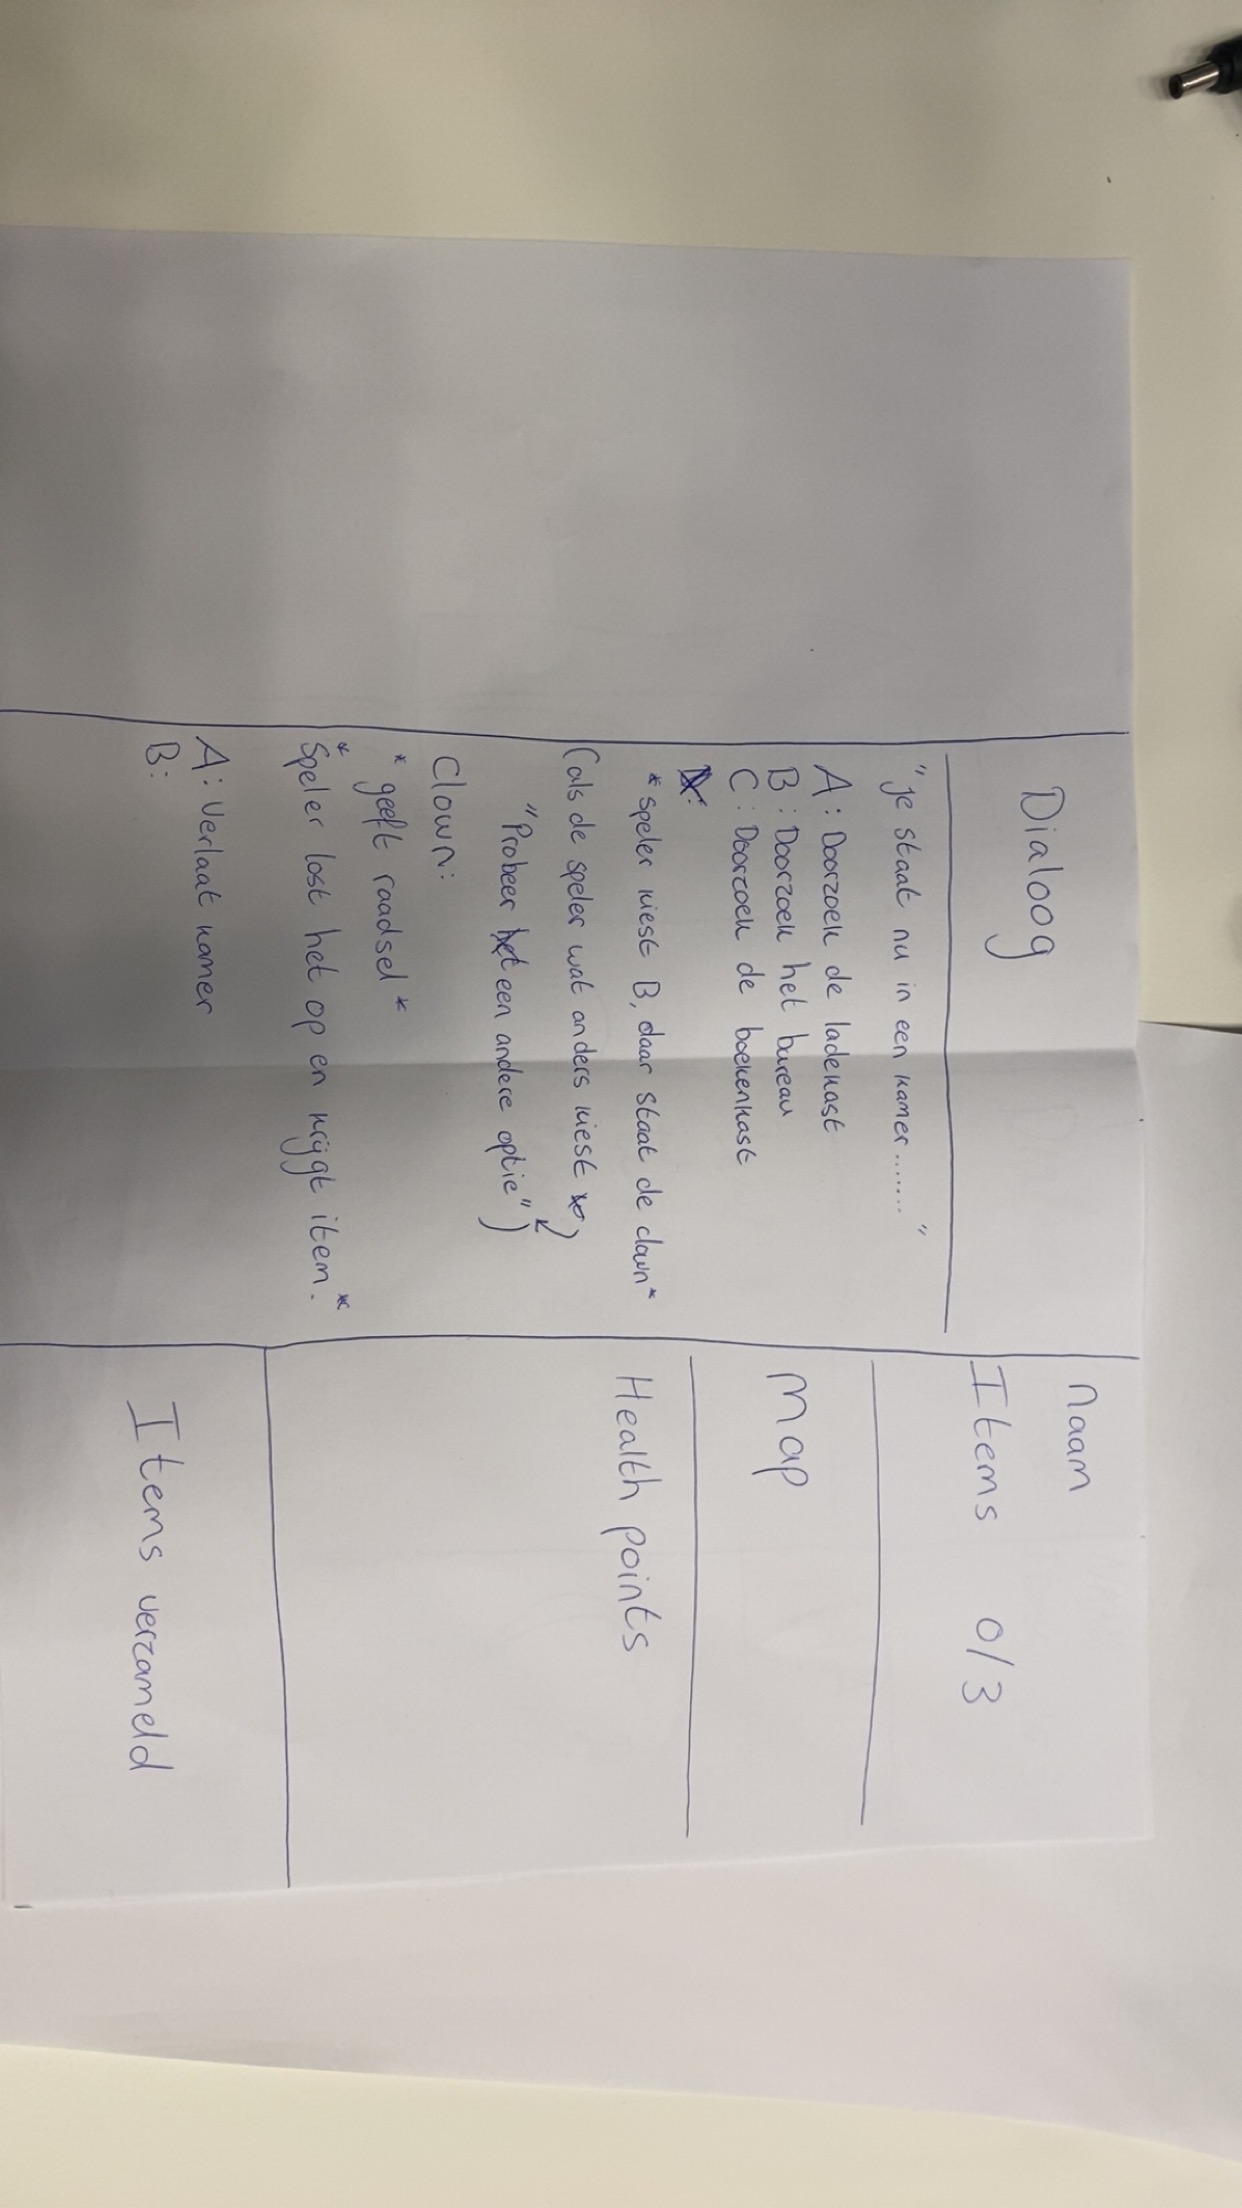 Dialoog
"je staat nu in een kamer......."
A: Doorzoek de ladekast
B: Doorzoek het bureau
C: Doorzoek de boekenkast
*speler kiest B, daar staat de clown*
(als de speler wat anders kiest)
"Probeer een andere optie")
Clown:
*geeft raadsel*
*Speler lost het op en krijgt item.*
A: Verlaat kamer
B:
naam
Items 0/3
map
Health points
Items verzameld